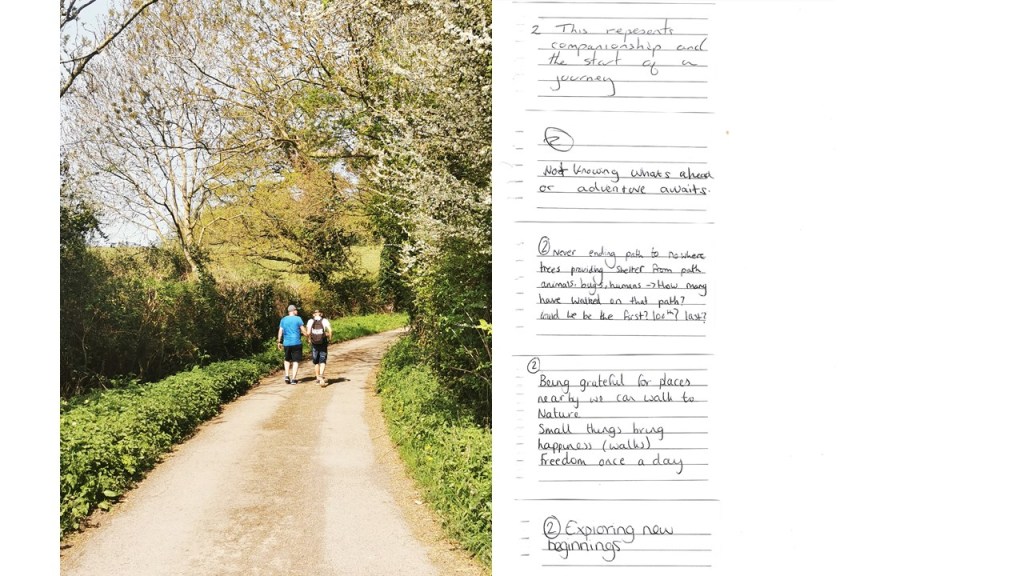 2 This represents
companionship and
the start of a
journey
2
Not knowing whats ahead
or adventure awaits.
2 Never ending path to nowhere
trees providing shelter from path
animals, bugs, humans → How many
have walked on that path?
Could we be the first? 100th? last?
2
Being grateful for places
nearby we can walk to
Nature
Small things bring
happiness (walks)
freedom once a day
2 Exploring new
beginnings